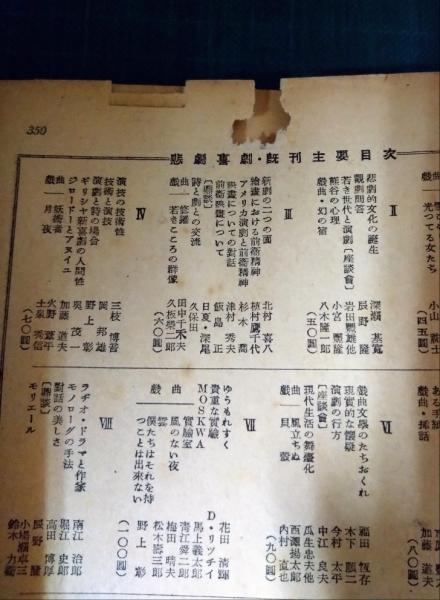 350
悲劇喜劇・既刊主要目次
光つてる女たち
小山祐士
(四五圓)
Ⅱ
悲劇的文化の誕生
深瀬基寛
觀劇問答
辰野隆
若き世代と演劇(座談會)
岩田豐雄他
熊谷の心理
小宮豐隆
戲曲・幻の宿
八木隆一郎
(五〇圓)
Ⅲ
新劇の二つの面
北村喜八
繪畫における前衞精神
植村鷹千代
アメリカ演劇と前衞精神
杉木喬
映畫についての對話
津村秀夫
前衞映畫について
飯島正
[鼎談]
詩と劇との交流
日夏・深尾
久保田
戲曲
修羅
田中千禾夫
若きこころの群像
久板榮二郎
(六〇圓)
Ⅳ
演技の技術性
三枝博音
技術と演技
岡邦雄
演劇と詩の場合
野上彰
ギリシヤ新喜劇の人間性
呉茂一
ジロードーとアヌイユ
加藤道夫
戲曲
妖術者
火野葦平
月夜
土泉秀信
(七〇圓)
戲曲・挿話
加藤道夫
(八〇圓)
Ⅵ
戲曲文學のたちおくれ
福田恆存
現實的な懷疑
木下順二
演劇の行方
今村太平
[座談會]
中江良夫
現代生活の舞臺化
瓜生忠夫他
戲曲
風立ちぬ
西澤揚太郎
貝殼
内村直也
(九〇圓)
Ⅶ
ゆうもれすく
花田清輝
貴重な實驗
D・リツチイ
MOSKWA
馬上義太郎
戲曲
實驗室
青江舜二郎
風のない夜
梅田晴夫
雲
松木壽三郎
僕たちはそれを持つことは出來ない
野上彰
(一〇〇圓)
Ⅷ
ラヂオ・ドラマと作家
南江治郎
モノローグの手法
堀江史郎
對話の美しさ
高田博厚
[鼎談]
モリエール
辰野隆
小場瀬卓三
鈴木力衞